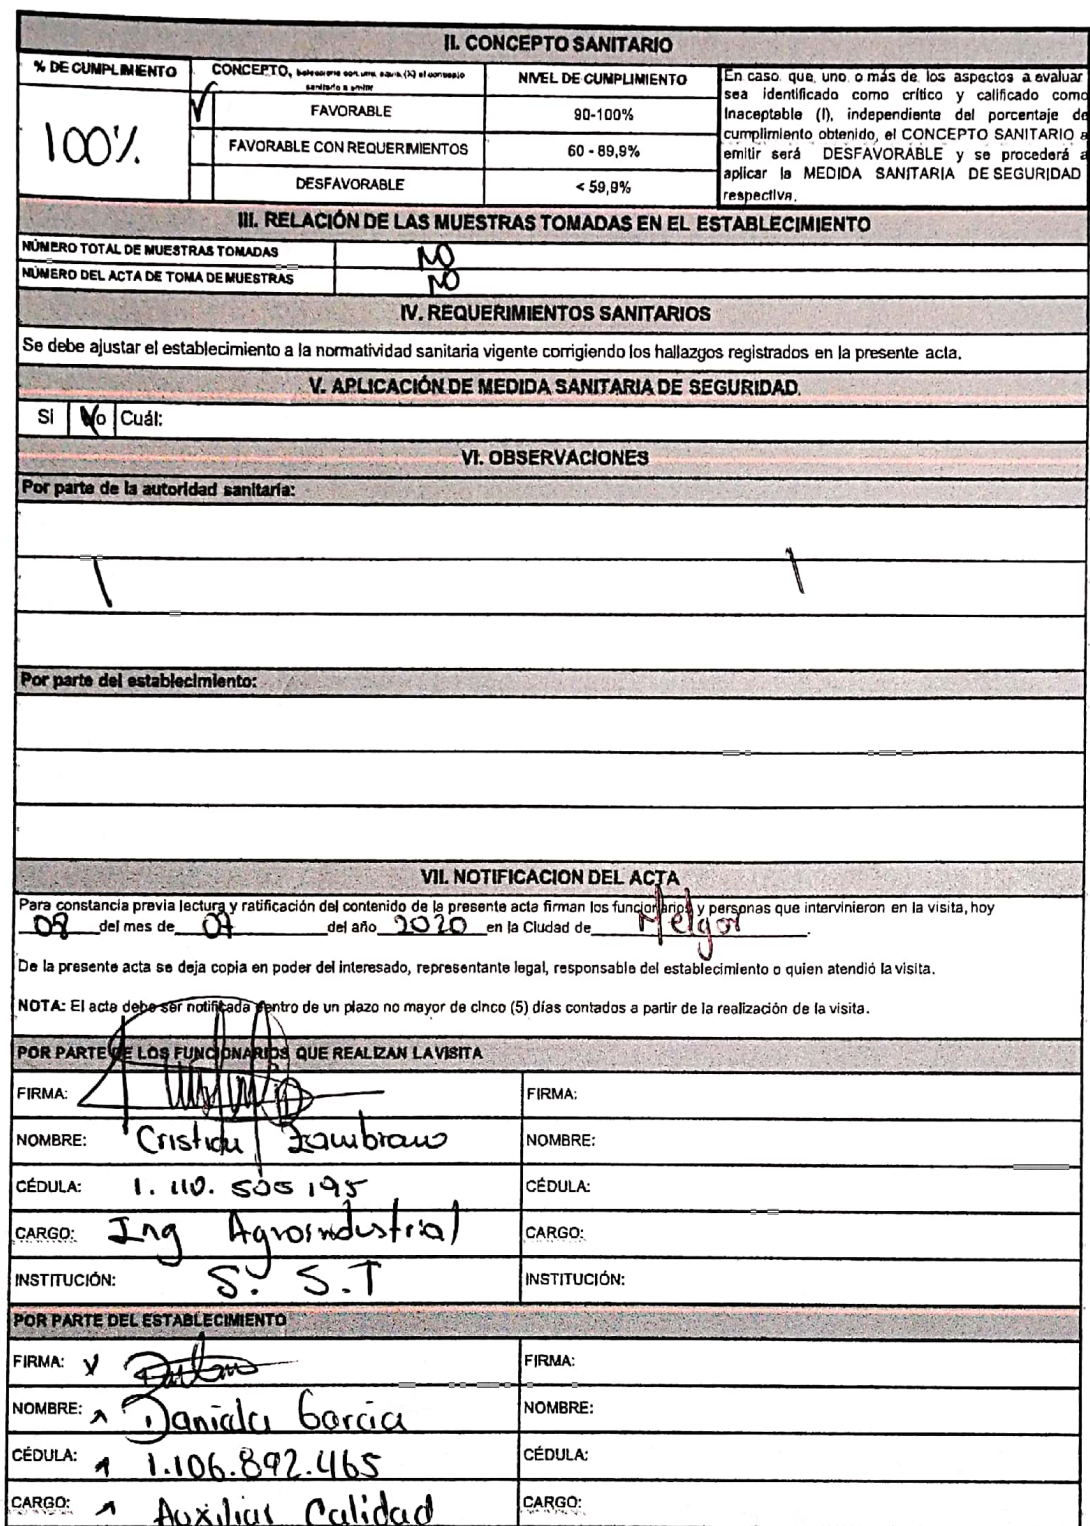 II. CONCEPTO SANITARIO
% DE CUMPLIMIENTO
CONCEPTO, Seleccione con una equis (X) el concepto sanitario a emitir
NIVEL DE CUMPLIMIENTO
100%
FAVORABLE
90-100%
FAVORABLE CON REQUERIMIENTOS
60 - 89,9%
DESFAVORABLE
< 59,9%
En caso que, uno o más de los aspectos a evaluar
sea identificado como crítico y calificado como
Inaceptable (I), independiente del porcentaje de
cumplimiento obtenido, el CONCEPTO SANITARIO a
emitir será DESFAVORABLE y se procederá a
aplicar la MEDIDA SANITARIA DE SEGURIDAD
respectiva.
III. RELACIÓN DE LAS MUESTRAS TOMADAS EN EL ESTABLECIMIENTO
NÚMERO TOTAL DE MUESTRAS TOMADAS NO
NÚMERO DEL ACTA DE TOMA DE MUESTRAS NO
IV. REQUERIMIENTOS SANITARIOS
Se debe ajustar el establecimiento a la normatividad sanitaria vigente corrigiendo los hallazgos registrados en la presente acta.
V. APLICACIÓN DE MEDIDA SANITARIA DE SEGURIDAD.
Si No Cuál:
VI. OBSERVACIONES
Por parte de la autoridad sanitaria:
Por parte del establecimiento:
VII. NOTIFICACION DEL ACTA
Para constancia previa lectura y ratificación del contenido de la presente acta firman los funcionarios y personas que intervinieron en la visita, hoy
08 del mes de 07 del año 2020 en la Ciudad de Melgar.
De la presente acta se deja copia en poder del interesado, representante legal, responsable del establecimiento o quien atendió la visita.
NOTA: El acta debe ser notificada dentro de un plazo no mayor de cinco (5) días contados a partir de la realización de la visita.
POR PARTE DE LOS FUNCIONARIOS QUE REALIZAN LA VISITA
FIRMA: FIRMA:
NOMBRE: Cristian Zambrano NOMBRE:
CÉDULA: 1.110.505195 CÉDULA:
CARGO: Ing Agroindustrial CARGO:
INSTITUCIÓN: S. S.T INSTITUCIÓN:
POR PARTE DEL ESTABLECIMIENTO
FIRMA: x FIRMA:
NOMBRE: Daniela Garcia NOMBRE:
CÉDULA: 1.106.892.465 CÉDULA:
CARGO: Auxiliar Calidad CARGO: